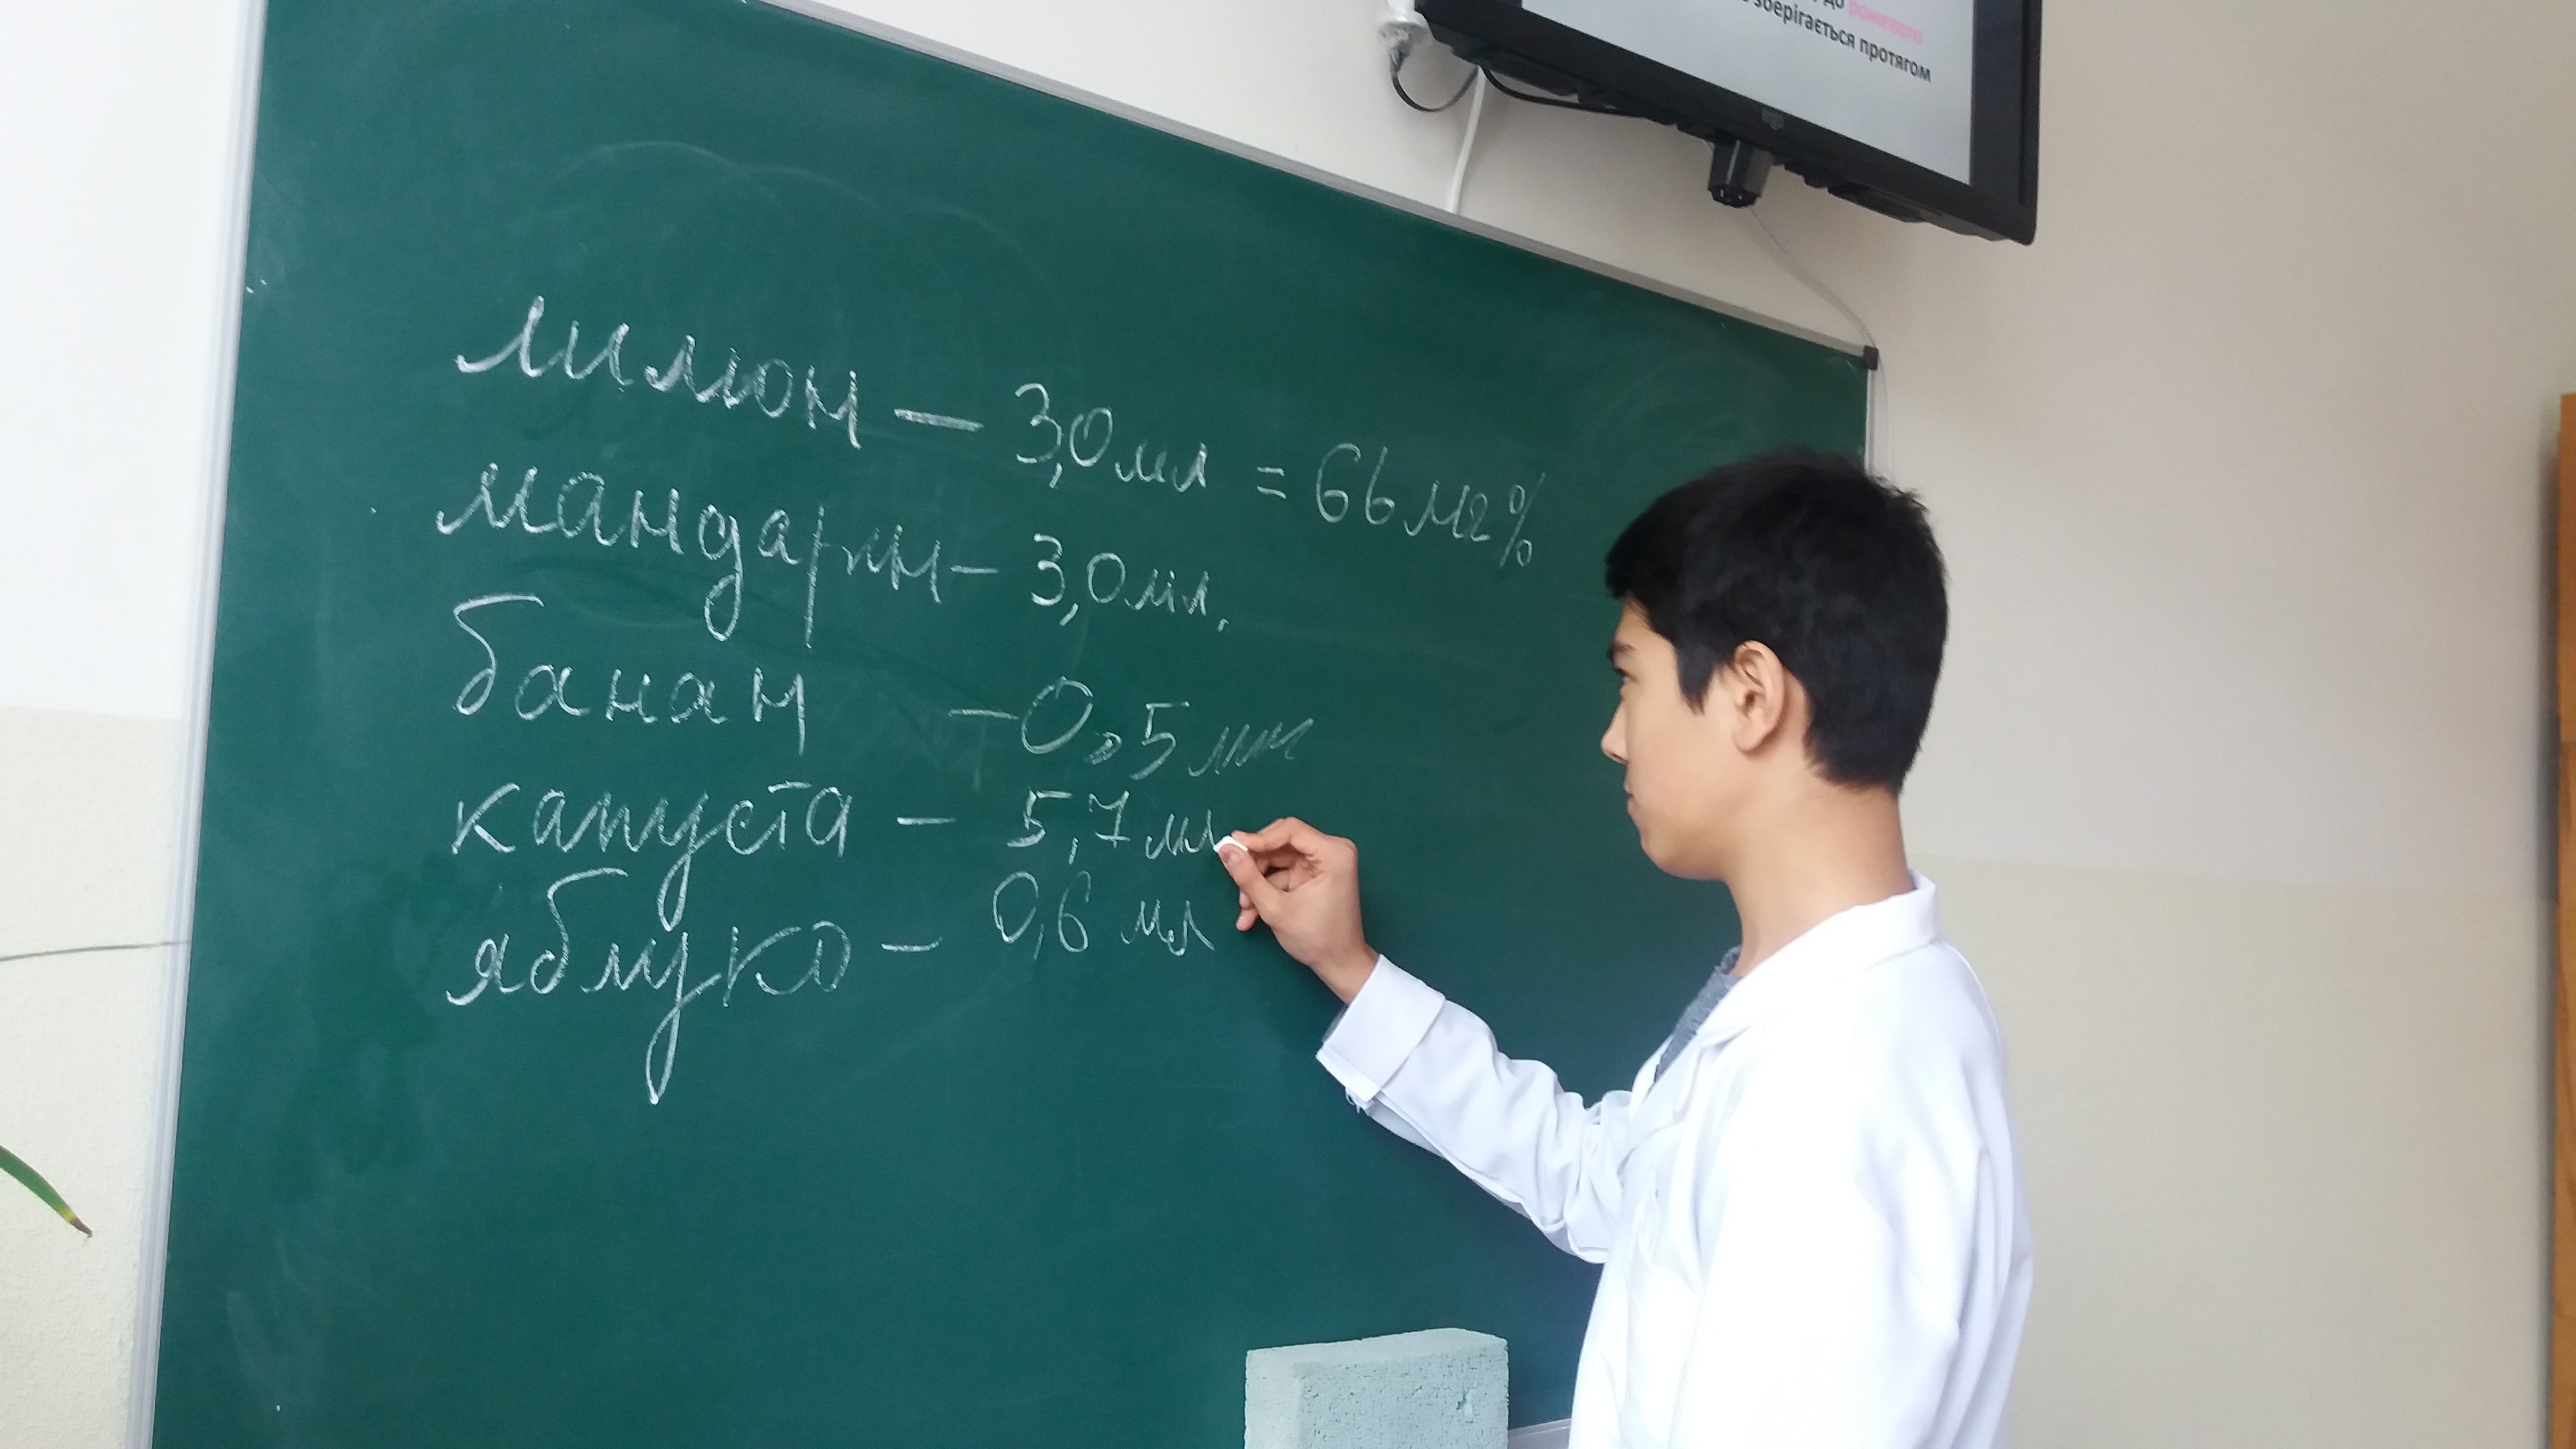 до рожевого
зберігається протягом
лимон — 3,0 мл = 66 мг%
мандарин - 3,0 мл.
банан - 0,5 мл
капуста - 5,7 мл
яблуко - 0,6 мл